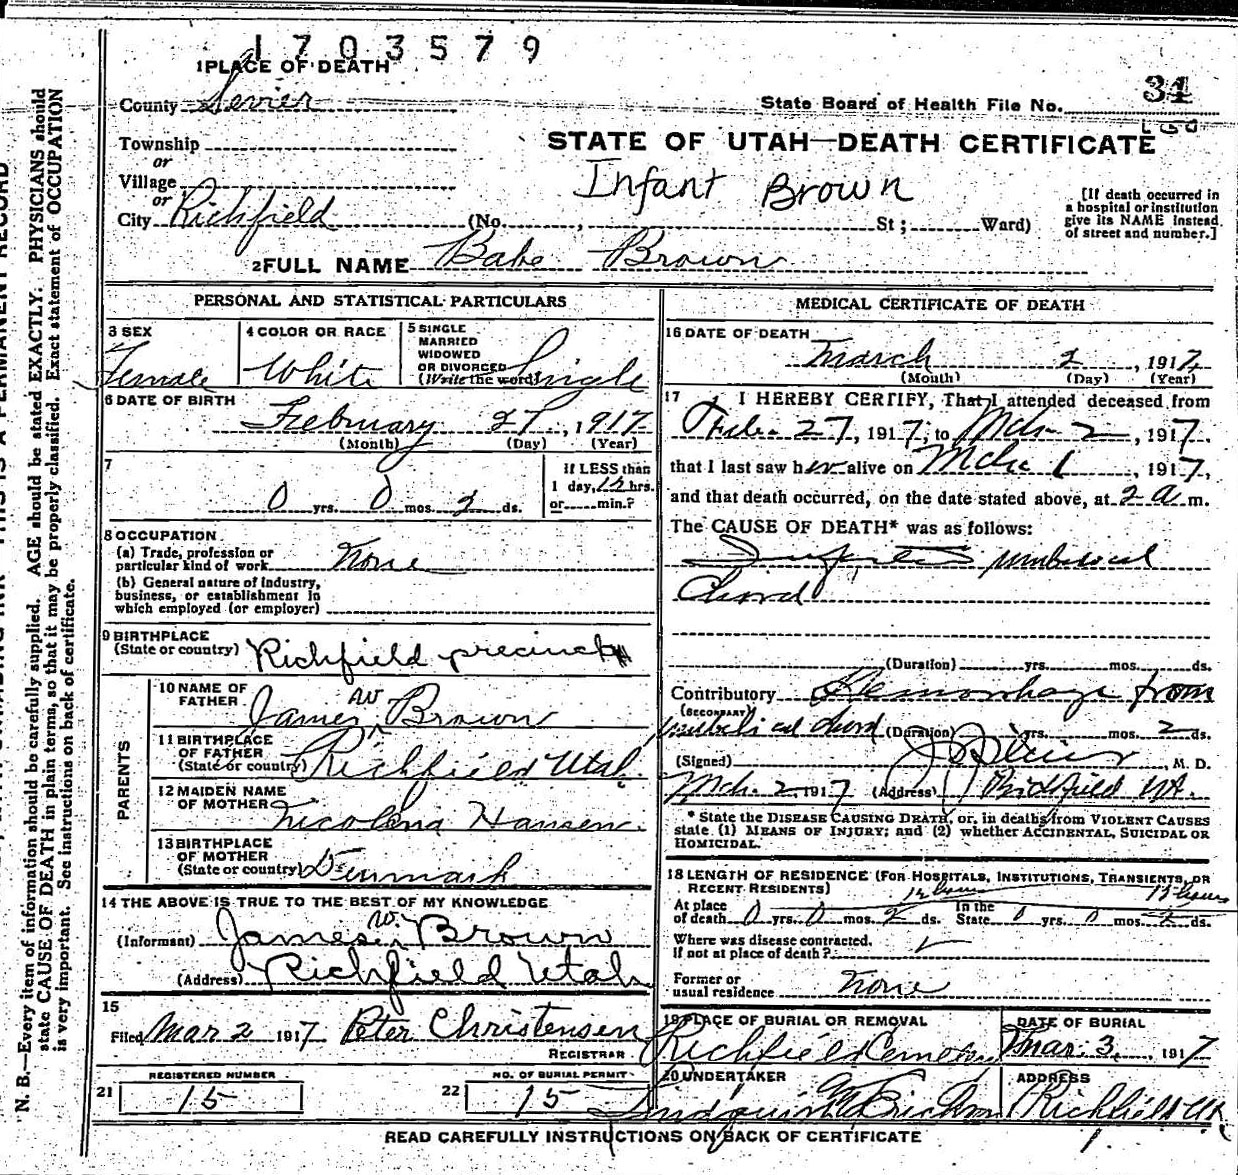 1703579
1 PLACE OF DEATH
County Sevier
State Board of Health File No. 34
Township
or
Village
or
City Richfield
STATE OF UTAH—DEATH CERTIFICATE
Infant Brown
(No. , St; Ward)
[If death occurred in
a hospital or institution
give its NAME instead
of street and number.]
2 FULL NAME Babe Brown
PERSONAL AND STATISTICAL PARTICULARS
3 SEX
Female
4 COLOR OR RACE
White
5 SINGLE
MARRIED
WIDOWED
OR DIVORCED
(Write the word) Single
6 DATE OF BIRTH
February 27, 1917
(Month) (Day) (Year)
7
0 yrs. 0 mos. 2 ds.
If LESS than
1 day, 12 hrs.
or min.?
8 OCCUPATION
(a) Trade, profession or
particular kind of work None
(b) General nature of industry,
business, or establishment in
which employed (or employer)
9 BIRTHPLACE
(State or country) Richfield precinct
PARENTS
10 NAME OF
FATHER James W Brown
11 BIRTHPLACE
OF FATHER
(State or country) Richfield Utah
12 MAIDEN NAME
OF MOTHER Nicolena Hansen
13 BIRTHPLACE
OF MOTHER
(State or country) Denmark
14 THE ABOVE IS TRUE TO THE BEST OF MY KNOWLEDGE
(Informant) James W. Brown
(Address) Richfield Utah
15
Filed Mar 2 1917 Peter Christensen
REGISTRAR
21 REGISTERED NUMBER
15
22 NO. OF BURIAL PERMIT
15
MEDICAL CERTIFICATE OF DEATH
16 DATE OF DEATH
March 2, 1917
(Month) (Day) (Year)
17 I HEREBY CERTIFY, That I attended deceased from
Feb. 27, 1917, to Mch. 2, 1917.
that I last saw her alive on Mch. 1, 1917,
and that death occurred, on the date stated above, at 2 a.m.
The CAUSE OF DEATH* was as follows:
umbilical
Chord
(Duration) yrs. mos. ds.
Contributory Hemorrhage from
(SECONDARY)
umbilical chord (Duration) yrs. mos. 2 ds.
(Signed) , M. D.
Mch. 2, 1917 (Address) Richfield Ut.
* State the DISEASE CAUSING DEATH, or, in deaths from VIOLENT CAUSES
state (1) MEANS OF INJURY; and (2) whether ACCIDENTAL, SUICIDAL OR
HOMICIDAL.
18 LENGTH OF RESIDENCE (FOR HOSPITALS, INSTITUTIONS, TRANSIENTS, OR
RECENT RESIDENTS) 12 hours 12 hours
At place
of death 0 yrs. 0 mos. 2 ds.
In the
State 0 yrs. 0 mos. 2 ds.
Where was disease contracted,
if not at place of death?
Former or
usual residence None
19 PLACE OF BURIAL OR REMOVAL
Richfield Cemetery
DATE OF BURIAL
Mar. 3, 1917
20 UNDERTAKER
ADDRESS
Richfield Ut
READ CAREFULLY INSTRUCTIONS ON BACK OF CERTIFICATE
N. B.—Every item of information should be carefully supplied. AGE should be stated EXACTLY. PHYSICIANS should
state CAUSE OF DEATH in plain terms, so that it may be properly classified. Exact statement of OCCUPATION
is very important. See instructions on back of certificate.